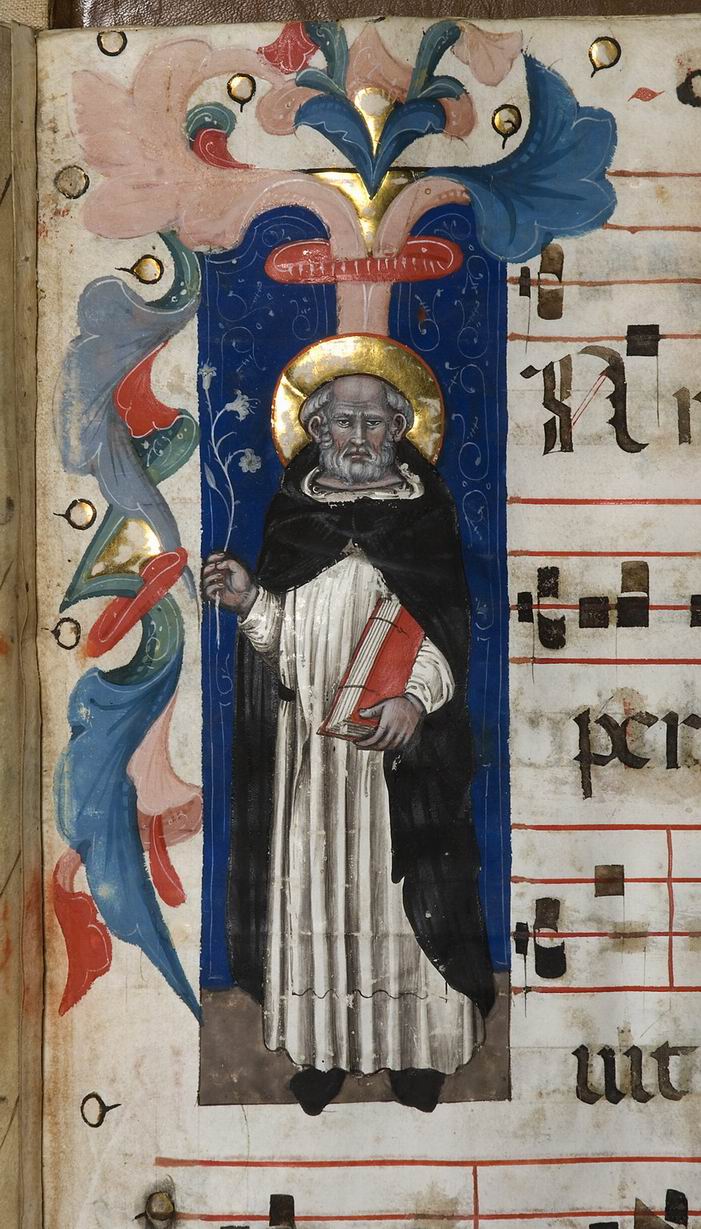 N
per
uit